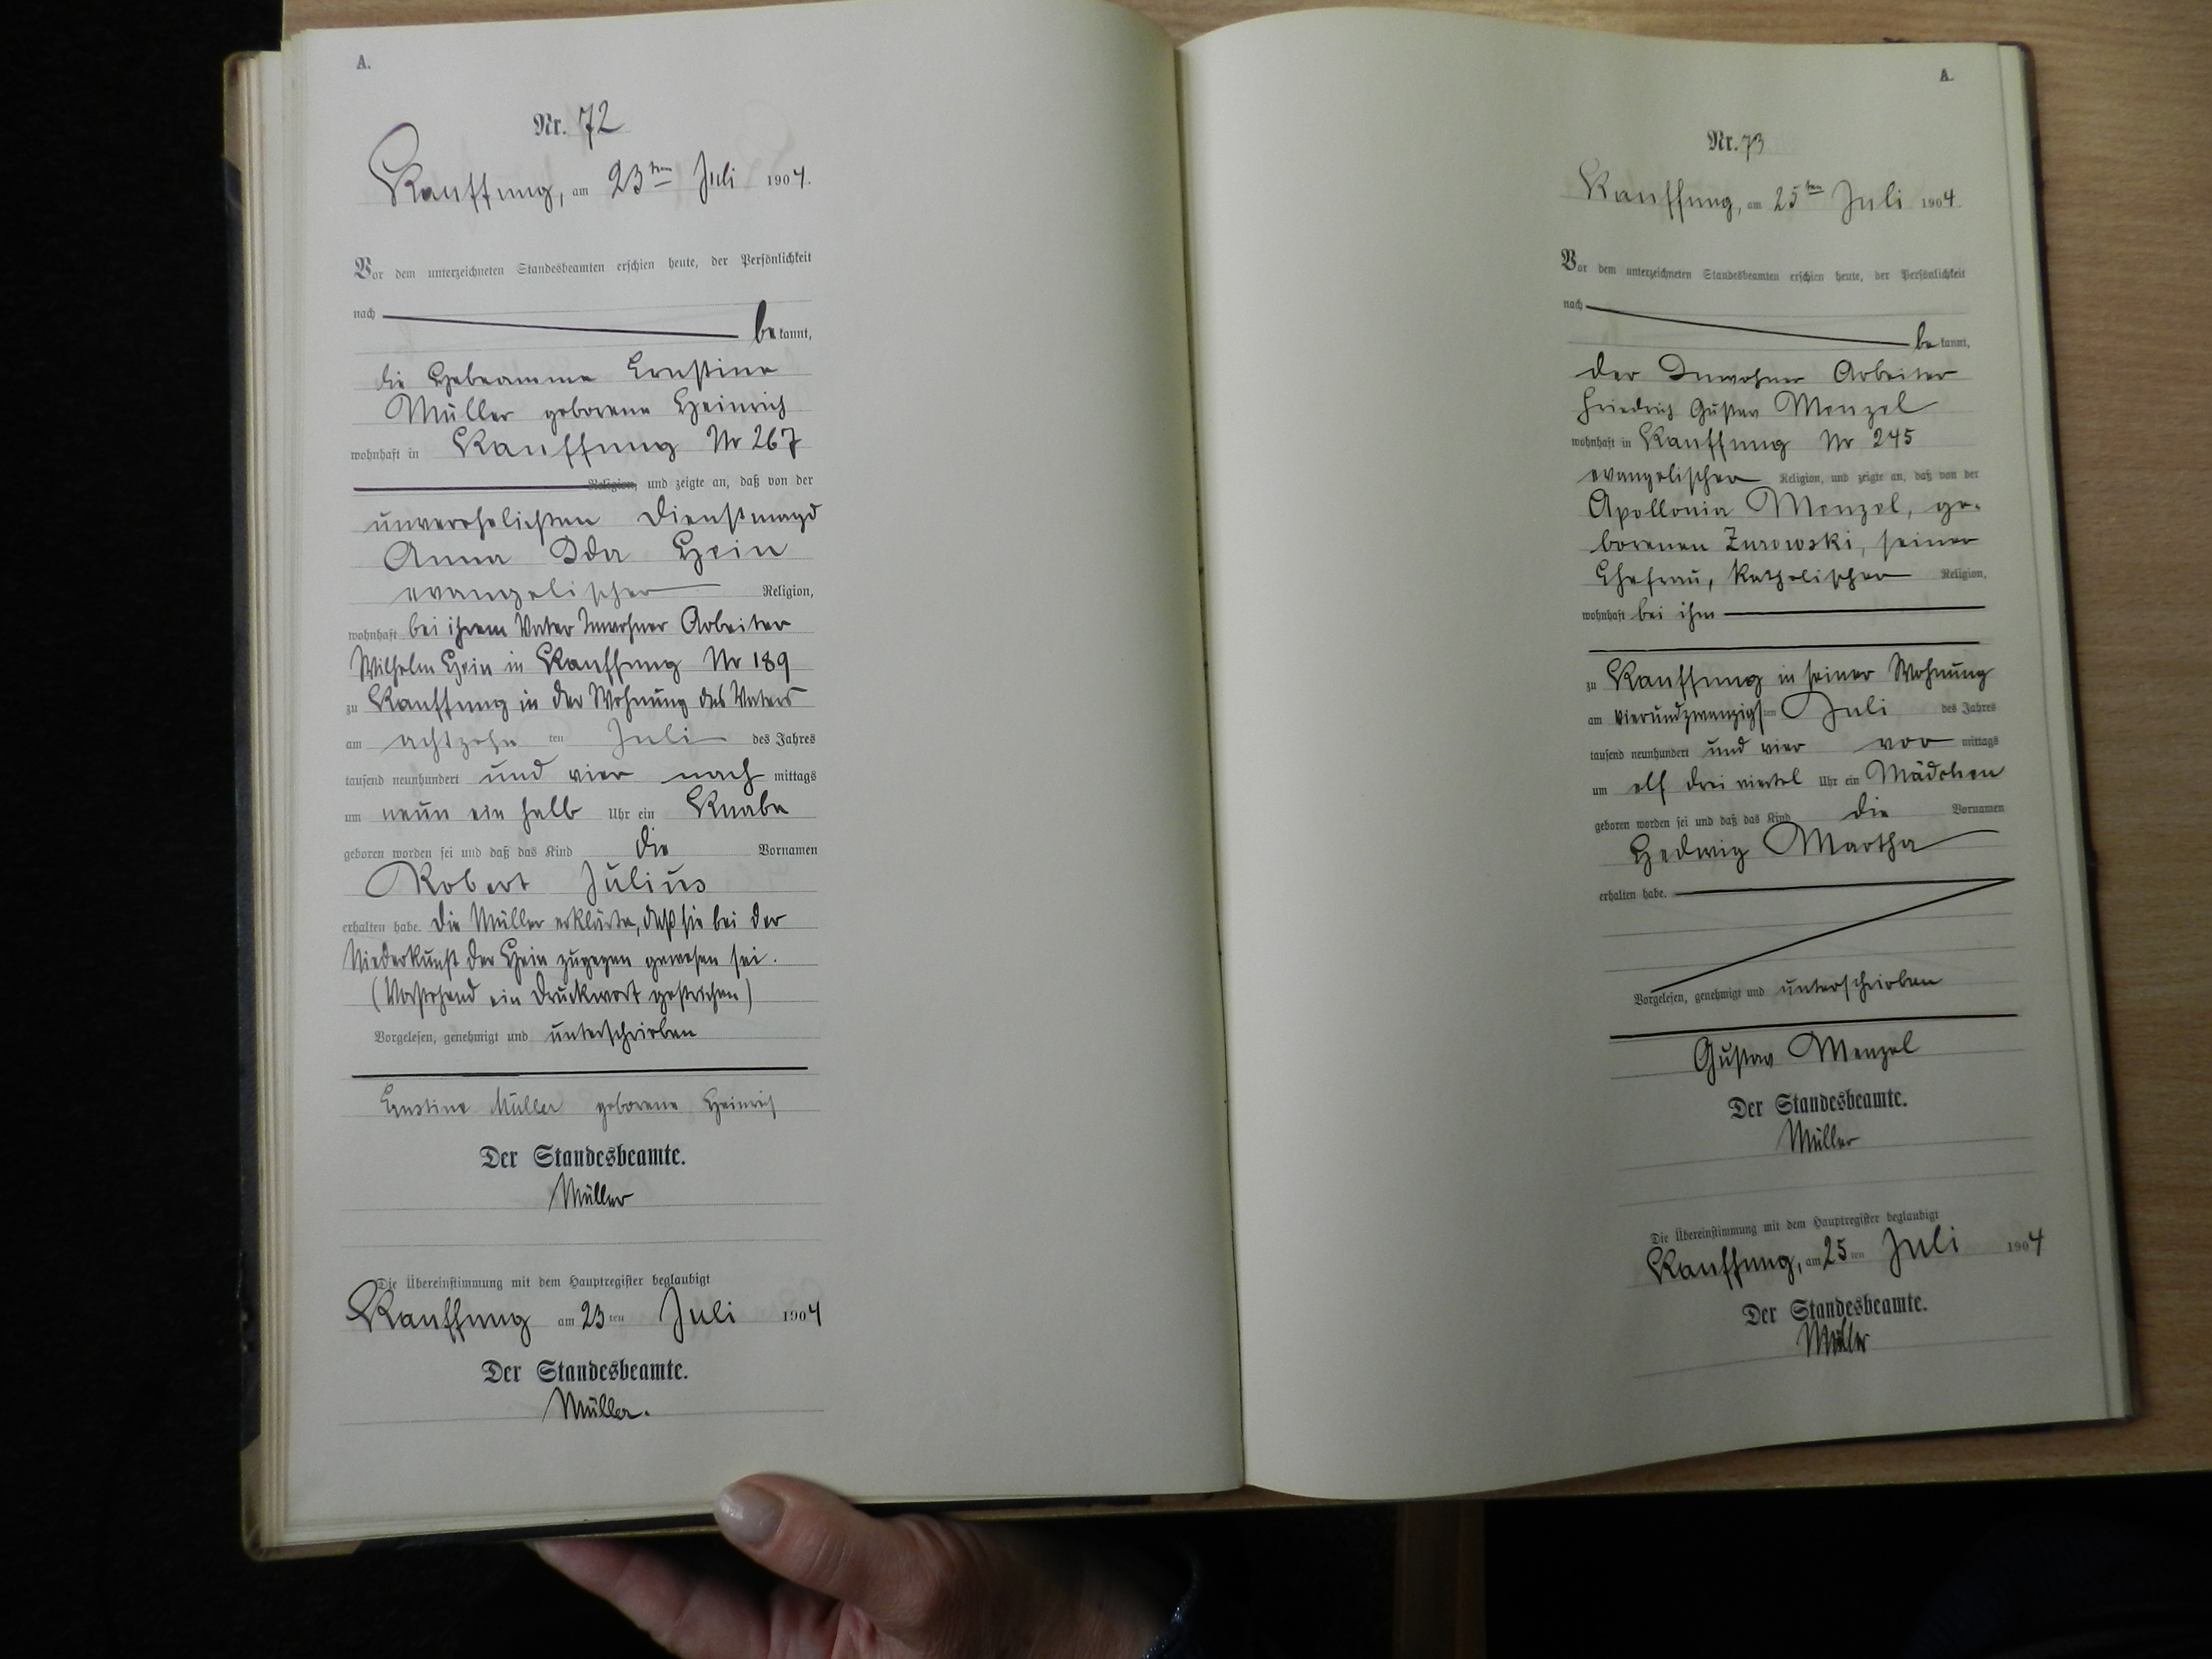 A.
Nr. 72
Kauffung, am 23ten Juli 1904.
Vor dem unterzeichneten Standesbeamten erschien heute, der Persönlichkeit
nach bekannt,
die Hebeamme Ernstine
Müller geborene Heinrich
wohnhaft in Kauffung Nr 267
Religion, und zeigte an, daß von der
unverehelichten Dienstmagd
Anna Ida Hein
evangelischer Religion,
wohnhaft bei ihrem Vater Inwohner Arbeiter
Wilhelm Hein in Kauffung Nr 189
zu Kauffung in der Wohnung des Vaters
am achtzehn ten Juli des Jahres
tausend neunhundert und vier nach mittags
um neun ein halb Uhr ein Knabe
geboren worden sei und daß das Kind die Vornamen
Robert Julius
erhalten habe. Die Müller erklärte, daß sie bei der
Niederkunft der Hein zugegen gewesen sei.
(Vorstehend ein Druckwort gestrichen)
Vorgelesen, genehmigt und unterschrieben
Ernstine Müller geborene Heinrich
Der Standesbeamte.
Müller
Die Übereinstimmung mit dem Hauptregister beglaubigt
Kauffung am 23ten Juli 1904
Der Standesbeamte.
Müller.
A.
Nr. 73
Kauffung, am 25ten Juli 1904.
Vor dem unterzeichneten Standesbeamten erschien heute, der Persönlichkeit
nach bekannt,
der Inwohner Arbeiter
Friedrich Gustav Menzel
wohnhaft in Kauffung Nr 245
evangelischer Religion, und zeigte an, daß von der
Apollonia Menzel, ge-
borenen Zurowski, seiner
Ehefrau, katholischer Religion,
wohnhaft bei ihm
zu Kauffung in seiner Wohnung
am vierundzwanzigsten Juli des Jahres
tausend neunhundert und vier vor mittags
um elf drei viertel Uhr ein Mädchen
geboren worden sei und daß das Kind die Vornamen
Hedwig Martha
erhalten habe.
Vorgelesen, genehmigt und unterschrieben
Gustav Menzel
Der Standesbeamte.
Müller
Die Übereinstimmung mit dem Hauptregister beglaubigt
Kauffung, am 25ten Juli 1904
Der Standesbeamte.
Müller